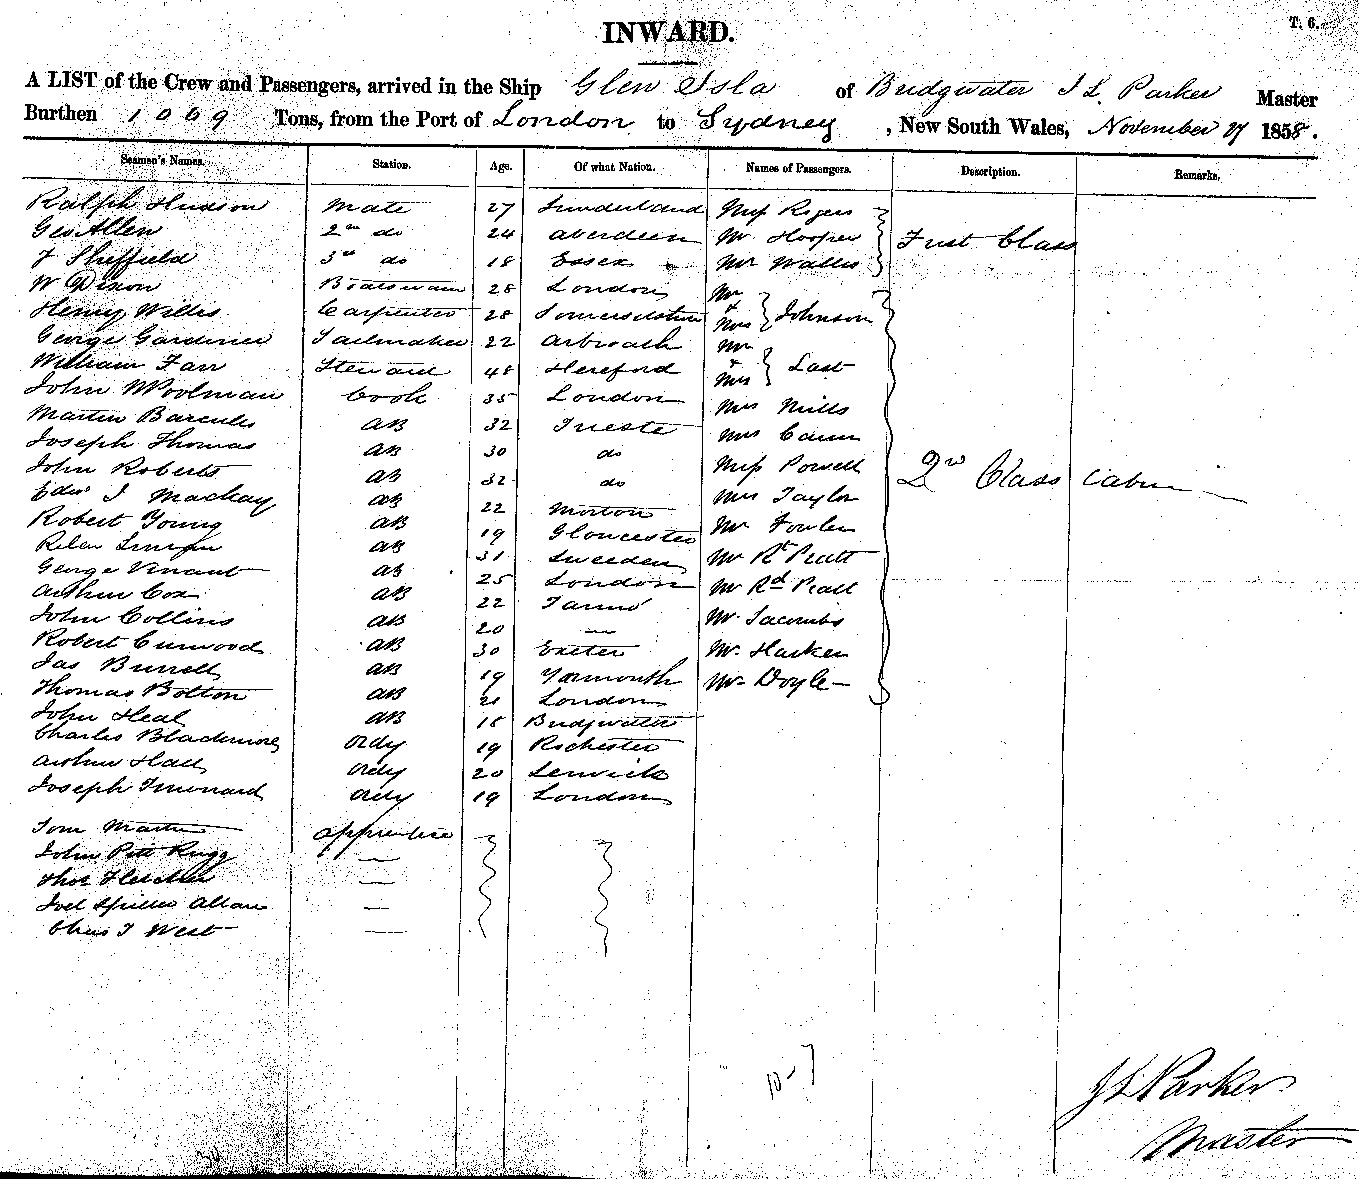 T. 6.
INWARD.
A LIST of the Crew and Passengers, arrived in the Ship Glen Isla of Bridgwater J L Parker Master
Burthen 1069 Tons, from the Port of London to Sydney, New South Wales, November 27 1858.
Seamen's Names. Station. Age. Of what Nation. Names of Passengers. Description. Remarks.
Ralph Hudson Mate 27 Sunderland Miss Rogers
Geo Allen 2nd do 24 Aberdeen Mr Hooper First Class
J Sheffield 3rd do 18 Essex Mr Wallis
W Dixon Boatswain 28 London Mr
Henry Willis Carpenter 28 Somersetshire & Mrs Johnson
George Gardiner Sailmaker 22 Arbroath Mr
William Farr Steward 48 Hereford & Mrs Last
John Woolman Cook 35 London Mrs Mills
Martin AB 32 Trieste Mrs
Joseph Thomas AB 30 do Miss Powell
John Roberts AB 32 do 2nd Class Cabin
Edwd J Mackay AB 22 Mrs Taylor
Robert Young AB 19 Gloucester Mr Fowler
AB 31 Sweeden Mr Rt Pratt
George AB 25 London Mr Rd Pratt
Arthur Cox AB 22
John Collins AB 20 — Mr Jacombs
Robert Curwood AB 30 Exeter Mr Harken
Jas Burrell AB 19 Yarmouth Mr Doyle
Thomas Bolton AB 21 London
John Heal AB 18 Bridgwater
Charles Blackmore Ordy 19 Rochester
Arthur Hall Ordy 20 Lerwick
Joseph Ordy 19 London
Tom Martin Apprentice
John Pitt Rugg —
Thos Fletcher —
Joel Spiller Allan —
Chas J West —
J L Parker
Master